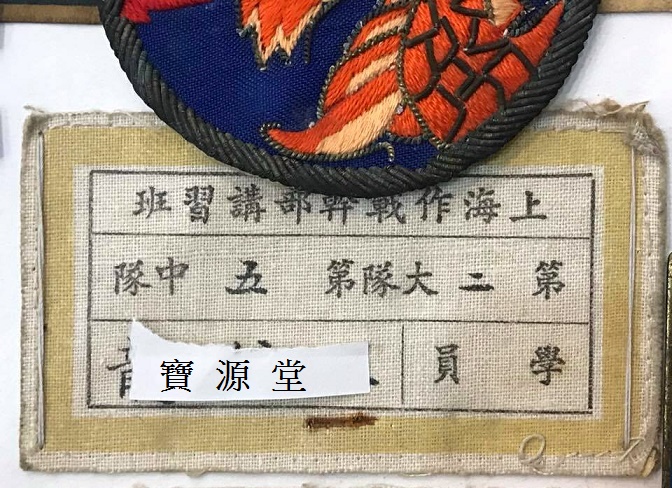 上海作戰幹部講習班
第二大隊第五中隊
學員
寶源堂